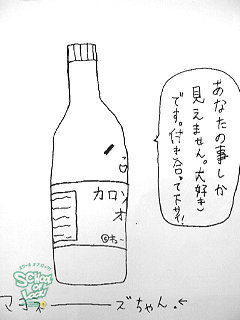 あなたの事しか
見えません。大好き
です。付き合って下サイ!
カロリ
オ
マヨネーーーズちゃん。←
SCHOOL
OF LOCK!